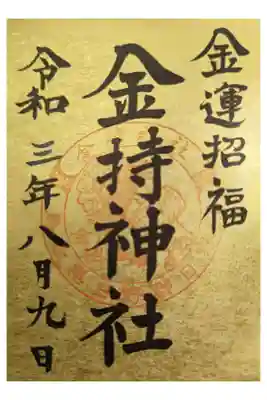 金運招福
金持神社
令和三年八月九日